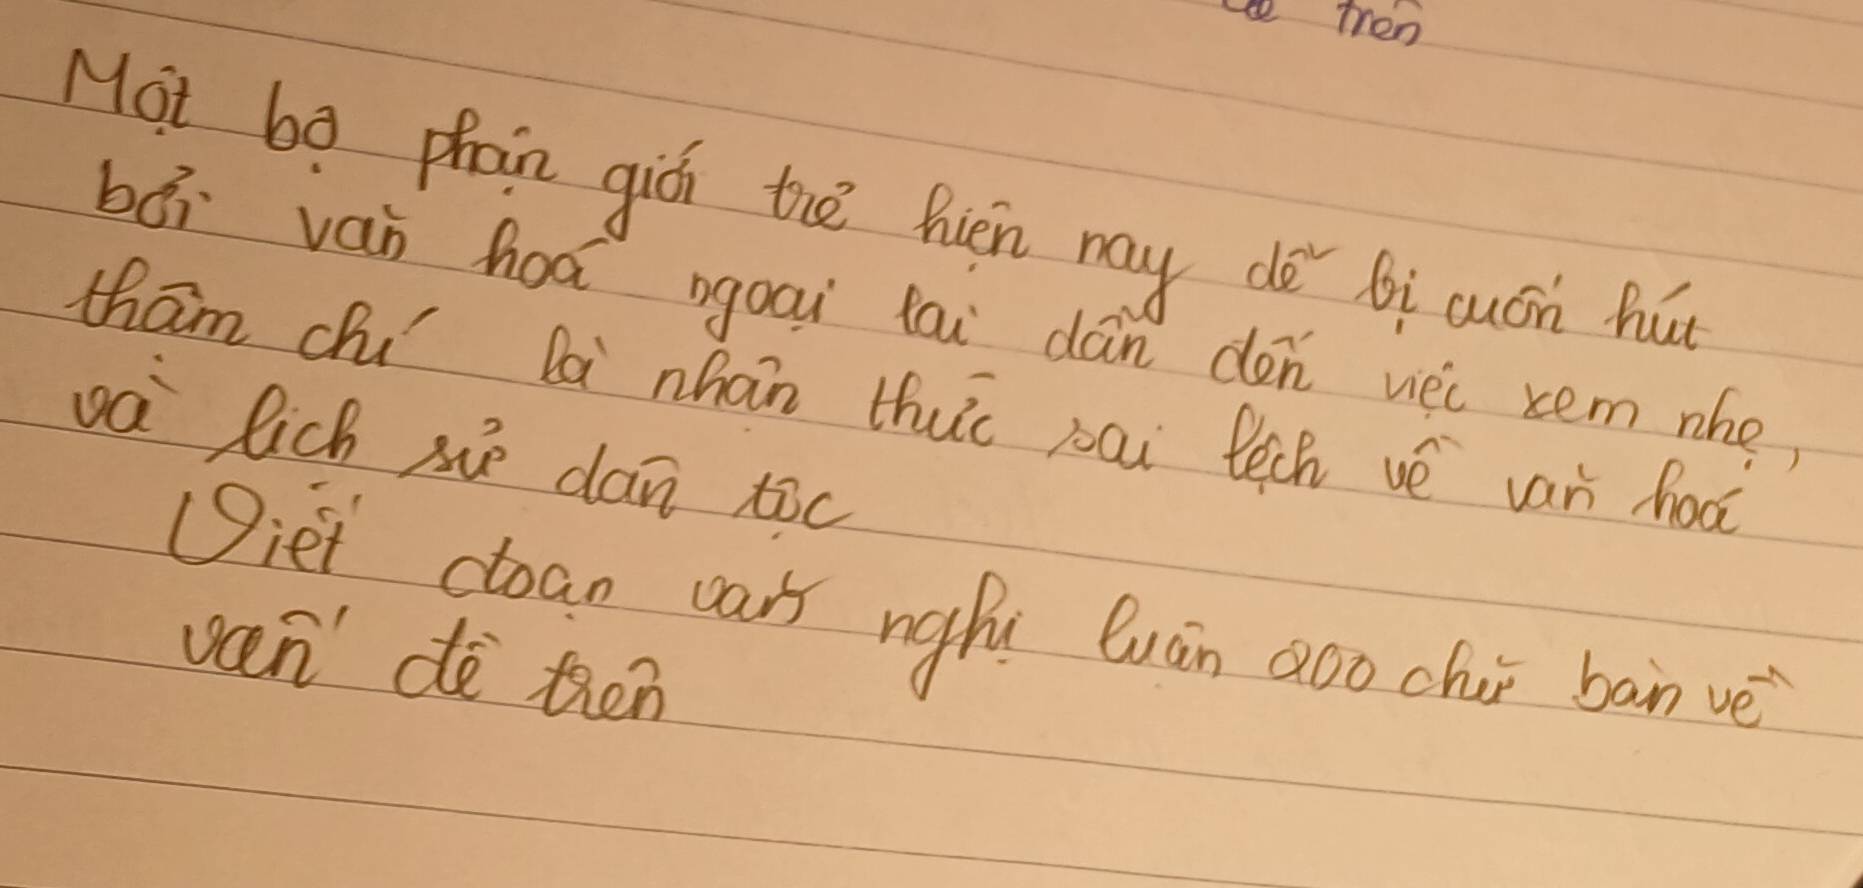 trên
Một bộ phận giới trẻ hiện nay dễ bị cuốn hút
bởi văn hoá ngoại lai dẫn đến việc xem nhẹ,
thậm chí là nhận thức sai lệch về văn hoá
và lịch sử dân tộc
Viết đoạn văn nghị luận 200 chữ bàn về
vấn đề trên